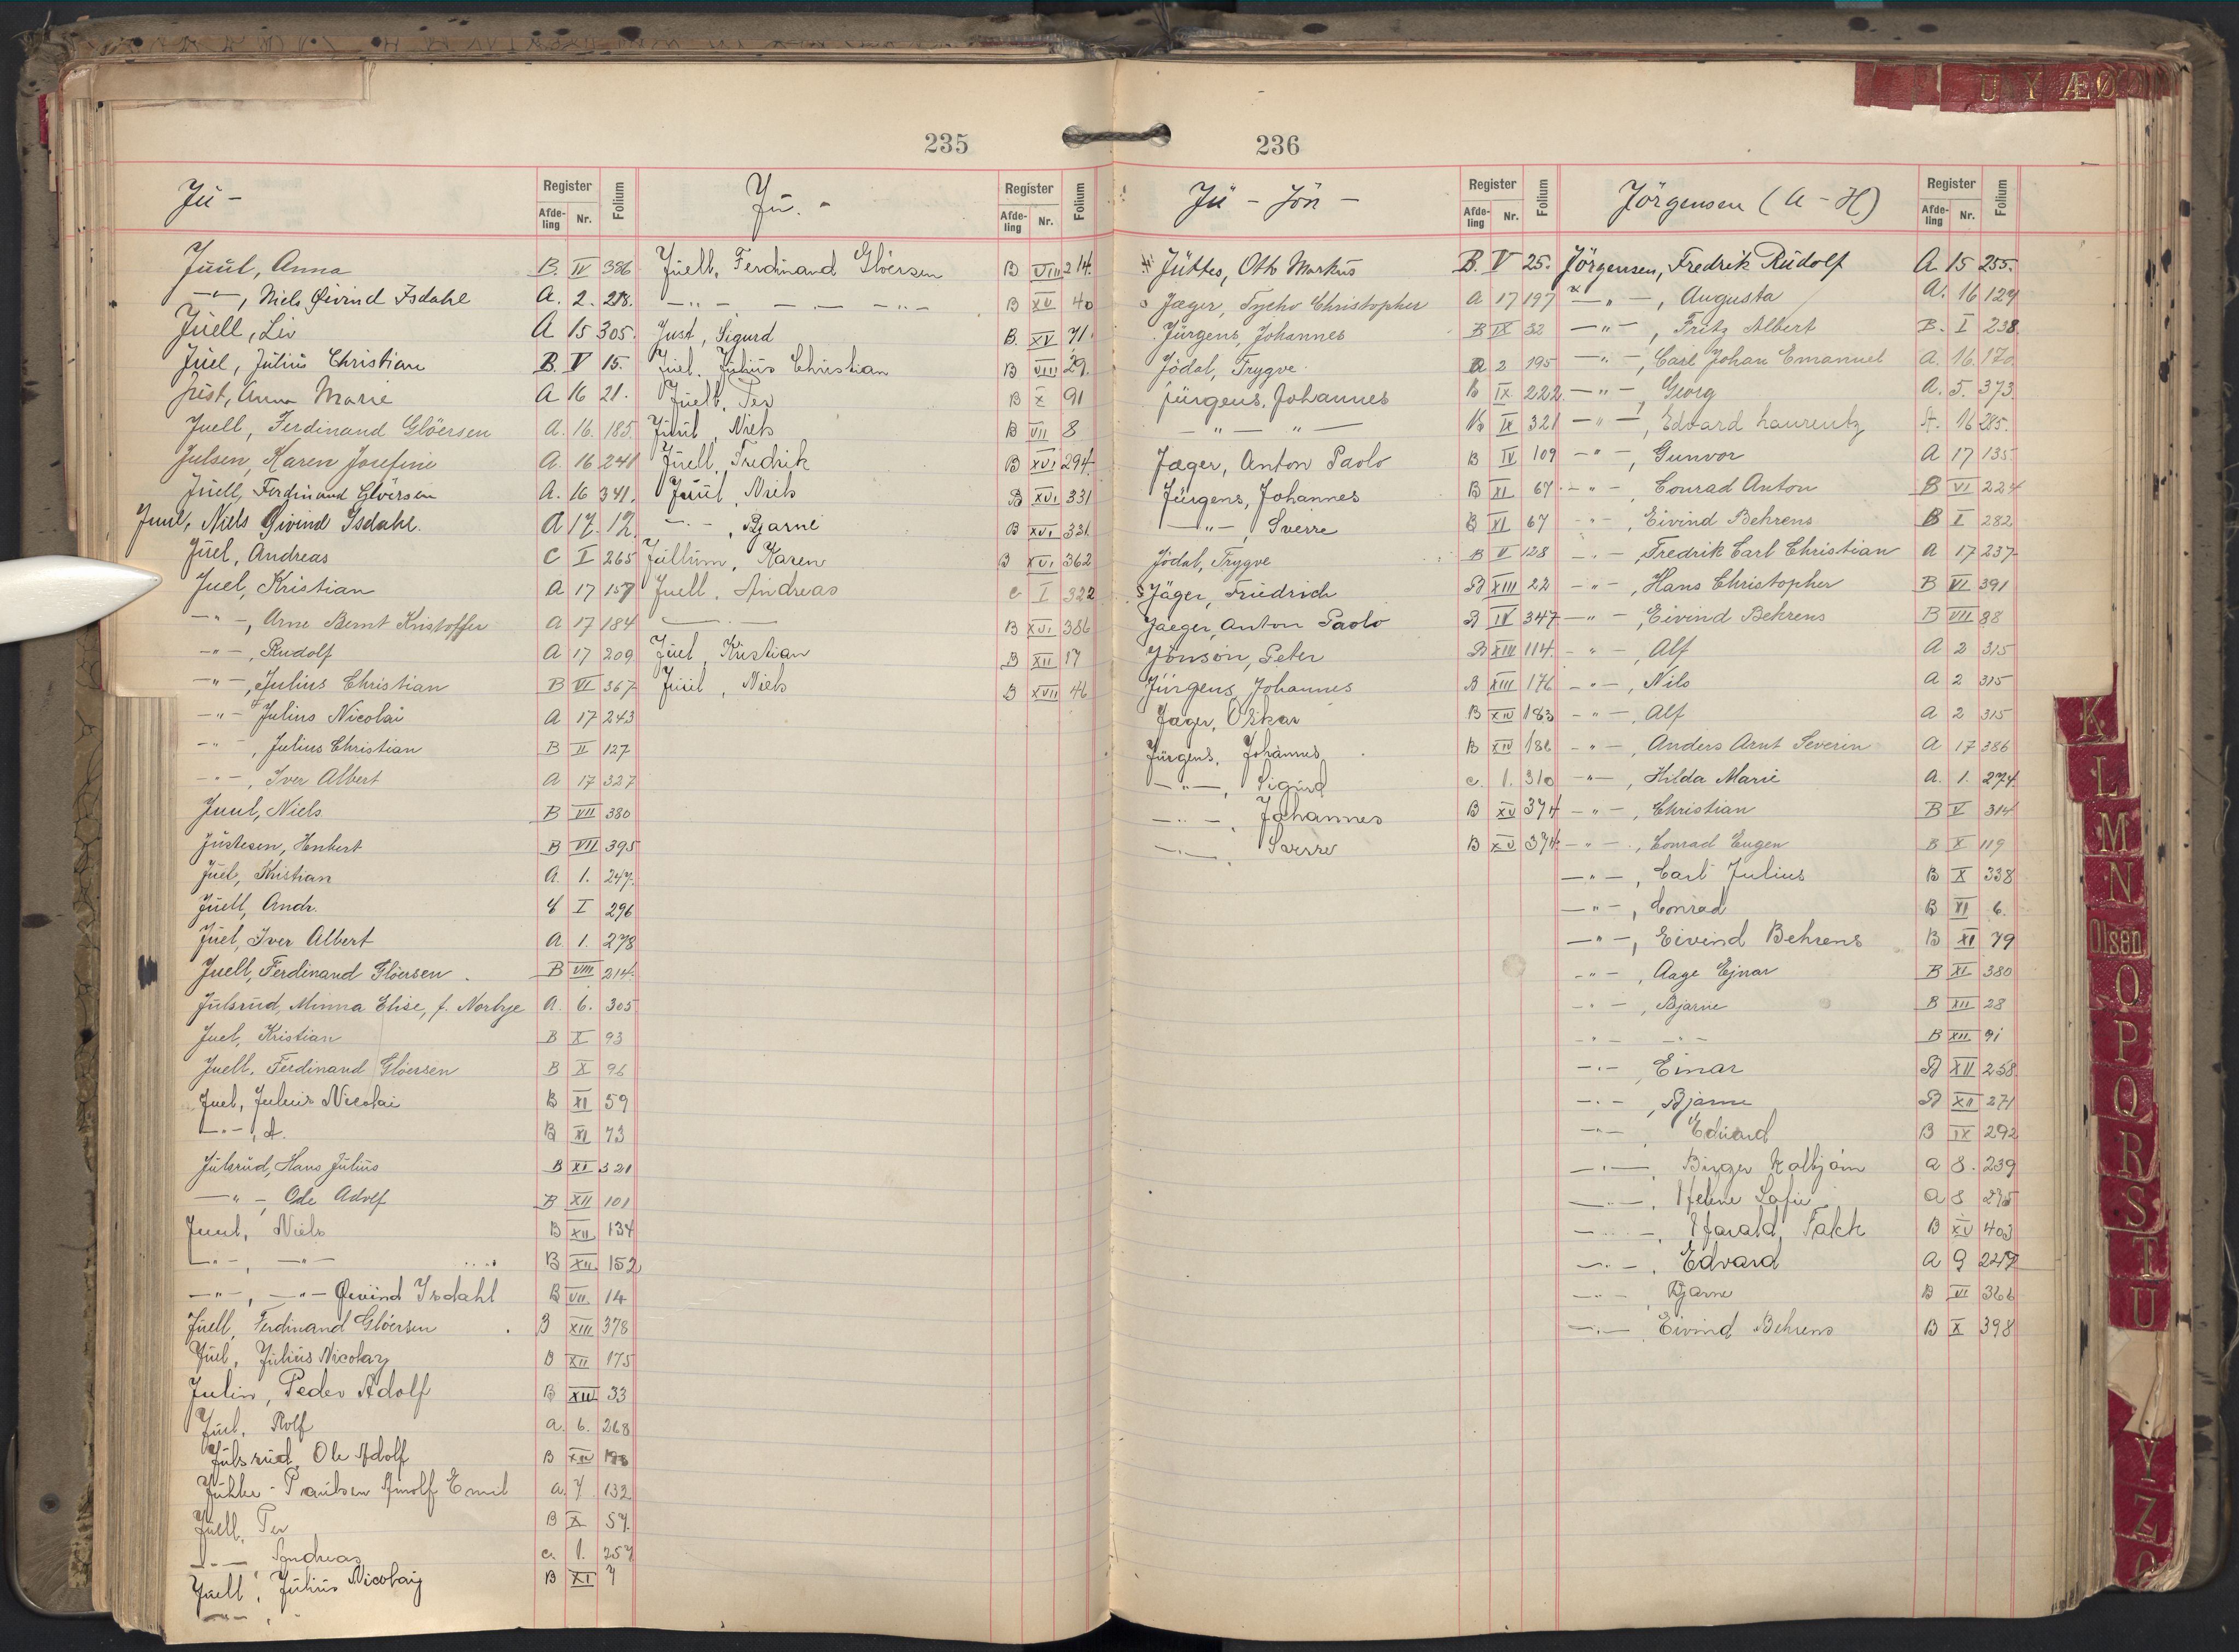 235
Ju -
Register
Afde-
ling
Nr.
Folium
Juul, Anna B. IV 386
-"-, Niels Øivind Isdahl A. 2. 218.
Juell, Liv A 15 305.
Juel, Julius Christian B. V 15.
Just, Anna Marie A 16 21.
Juell, Ferdinand Glöersen A. 16. 185.
Julsen, Karen Josefine A. 16 241
Juell, Ferdinand Glöersen A. 16 341.
Juul, Niels Øivind Isdahl. A 17. 12.
Juel, Andreas C I 265
Juel, Kristian A 17 157
-"-, Arne Bernt Kristoffer A 17 184
-"-, Rudolf A 17 209
-"-, Julius Christian B VI 367
-"- Julius Nicolai A 17 243
-"-, Julius Christian B II 127
-"-, Iver Albert A 17 327
Juul, Niels B VII 380
Justesen, Henbert B VII 395
Juel, Kristian A. 1. 247.
Juell, Andr. C I 296
Juel, Iver Albert A. 1. 278
Juell, Ferdinand Glöersen. B VIII 214.
Julsrud, Minna Elise, f. Norbye A. 6. 305
Juel, Kristian B X 93
Juell, Ferdinand Glöersen B X 96
Juel, Julius Nicolai B XI 59
-"-, A. B XI 73
Julsrud, Hans Julius B XI 321
-"-, Ole Adolf B XII 101
Juul, Niels B XII 134
-"-, -"- B XII 152
-"-, -"- Øivind Isdahl B VII 14
Juell, Ferdinand Glöersen. B XIII 378
Juel, Julius Nicolay B XII 175
Julin, Peder Adolf B XIV 33
Juel, Rolf a. 6. 268
Julsrud, Ole Adolf B XIV
Juhler-Paulsen Arnolf Emil a. 7 132
Juell, Per B X 57.
-"- Andreas c. 1. 257
Juell, Julius Nicolay B XI 7
-"-,
Ju. -
Register
Afde-
ling
Nr.
Folium
Juell, Ferdinand Glöersen B VIII 214.
-"- -"- -"- B XV 40
Just, Sigurd B. XV 71.
Juel, Julius Christian B VIII 29.
Juell, Per B X 91
Juul, Niels B VII 8
Juell, Fredrik B XVI 294
Juul, Niels B XVI 331
-"-, Bjarne B XVI 331.
Jullum, Karen B XVI 362
Juell, Andreas c I 322
-"- B XVI 386
Juel, Kristian B XII 17
Juul, Niels B XVII 46
236
Jü - Jön -
Register
Afde-
ling
Nr.
Folium
Jüttes, Otto Markus B. V 25.
Jæger, Tycho Christopher A 17 197
Jürgens, Johannes B IX 32
Jödal, Trygve A 2 195
Jürgens, Johannes B IX 222
-"- -"- B IX 321
Jæger, Anton Paolo B IV 109
Jürgens, Johannes B XI 67
-"-, Sverre B XI 67
Jödal, Trygve B V 128
Jäger, Friedrich B XIII 22
Jaeger, Anton Paolo B IV 347
Jönson, Peter B XIII 114.
Jürgens, Johannes B XIII 176
Jæger, Oskar B XIV 183
Jürgens, Johannes B XIV 186
-"-, Sigurd c. 1. 310
-"-, Johannes B XV 374
-"-, Sverre B XV 374.
Jörgensen (A - H)
Register
Afde-
ling
Nr.
Folium
Jörgensen, Fredrik Rudolf A 15 255.
-"-, Augusta A. 16 124
-"-, Fritz Albert B. I 238.
-"-, Carl Johan Emanuel A. 16. 170.
-"-, Georg A. 5. 373.
-"-, Edvard Laurentz A. 16 285.
-"-, Gunvor A 17 135
-"-, Conrad Anton B VI 224
-"-, Eivind Behrens B I 282
-"-, Fredrik Carl Christian A 17 237
-"-, Hans Christopher B VI 391
-"-, Eivind Behrens B VII 88
-"-, Alf A 2 315
-"-, Nils A 2 315
-"-, Alf A 2 315
-"-, Anders Arnt Severin A 17 386
-"-, Hilda Marie A. 1. 274.
-"-, Christian B V 314
-"-, Conrad Eugen B X 119
-"-, Carl Julius B X 338
-"-, Conrad B VI 6.
-"-, Eivind Behrens B XI 79
-"-, Aage Ejnar B XI 380
-"-, Bjarne B XII 28
-"- -"- B XII 91
-"-, Einar B XII 258
-"-, Bjarne B XII 271
-"-, Edvard B IX 292
-"-, Birger a 8. 239
-"-, Helene Sofie a 8
-"-, Harald Falck B XV 403
-"-, Edvard a 9 247
-"-, Bjarne B VI 366
-"-, Eivind Behrens B X 398
U Y Æ Ø
K
L
M
N
Olsen
O
P
Q
R
S
T
U
Y
Z